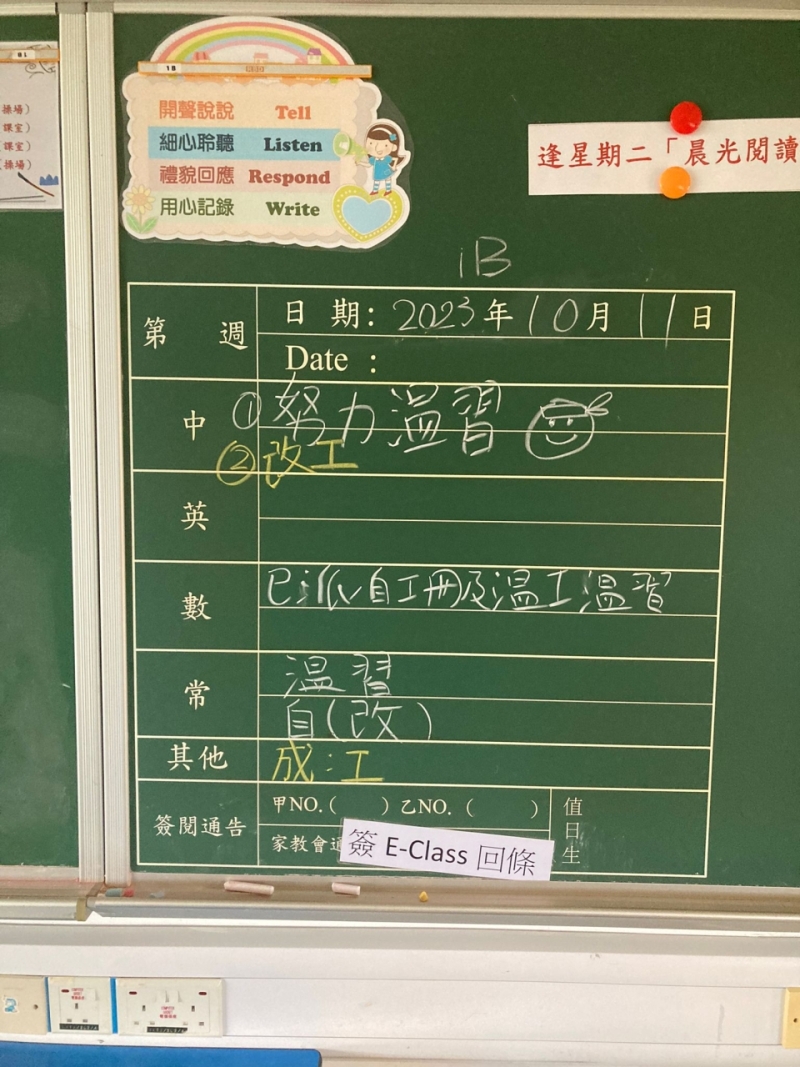 操場)
課室)
課室)
操場)
18
開聲說說 Tell
細心聆聽 Listen
禮貌回應 Respond
用心記錄 Write
逢星期二「晨光閱讀
1B
第 週
日 期: 2023年10月11日
Date :
中
①努力溫習
②改工
英
數
已派自工冊及溫工溫習
常
溫習
自(改)
其他
成:工
簽閱通告
甲NO.( ) 乙NO. ( )
家教會通
值日生
簽 E-Class 回條